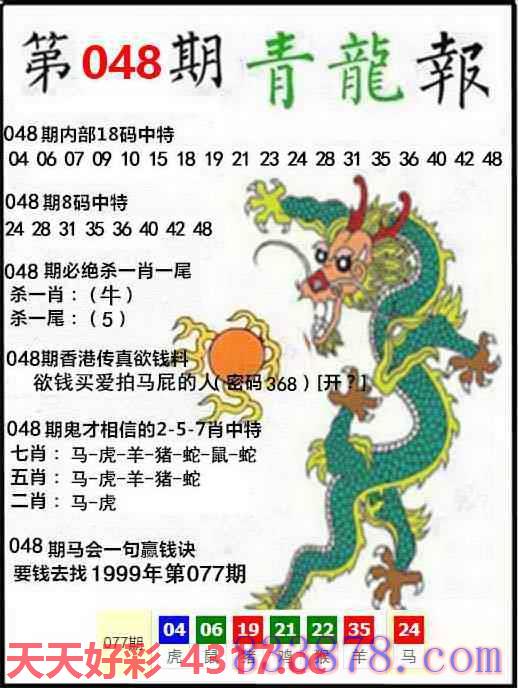 第048期 青龍報
048期内部18码中特
04 06 07 09 10 15 18 19 21 23 24 28 31 35 36 40 42 48
048期8码中特
24 28 31 35 36 40 42 48
048期必绝杀一肖一尾
杀一肖：（牛）
杀一尾：（5）
048期香港传真欲钱料
欲钱买爱拍马屁的人(密码368)[开？]
048期鬼才相信的2-5-7肖中特
七肖：马-虎-羊-猪-蛇-鼠-蛇
五肖：马-虎-羊-猪-蛇
二肖：马-虎
048期马会一句赢钱诀
要钱去找1999年第077期
077期 04 06 19 21 22 35 24
虎 鼠 猪 鸡 猴 羊 马
天天好彩 4317.cc